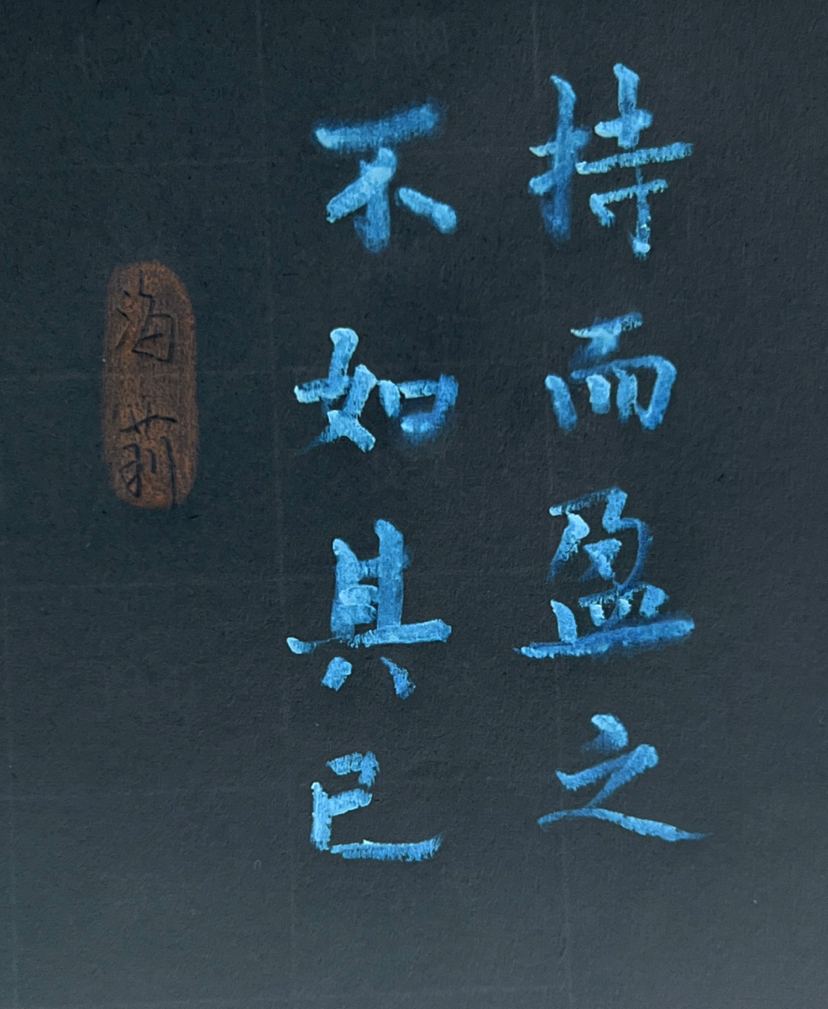 持而盈之
不如其已
海莉